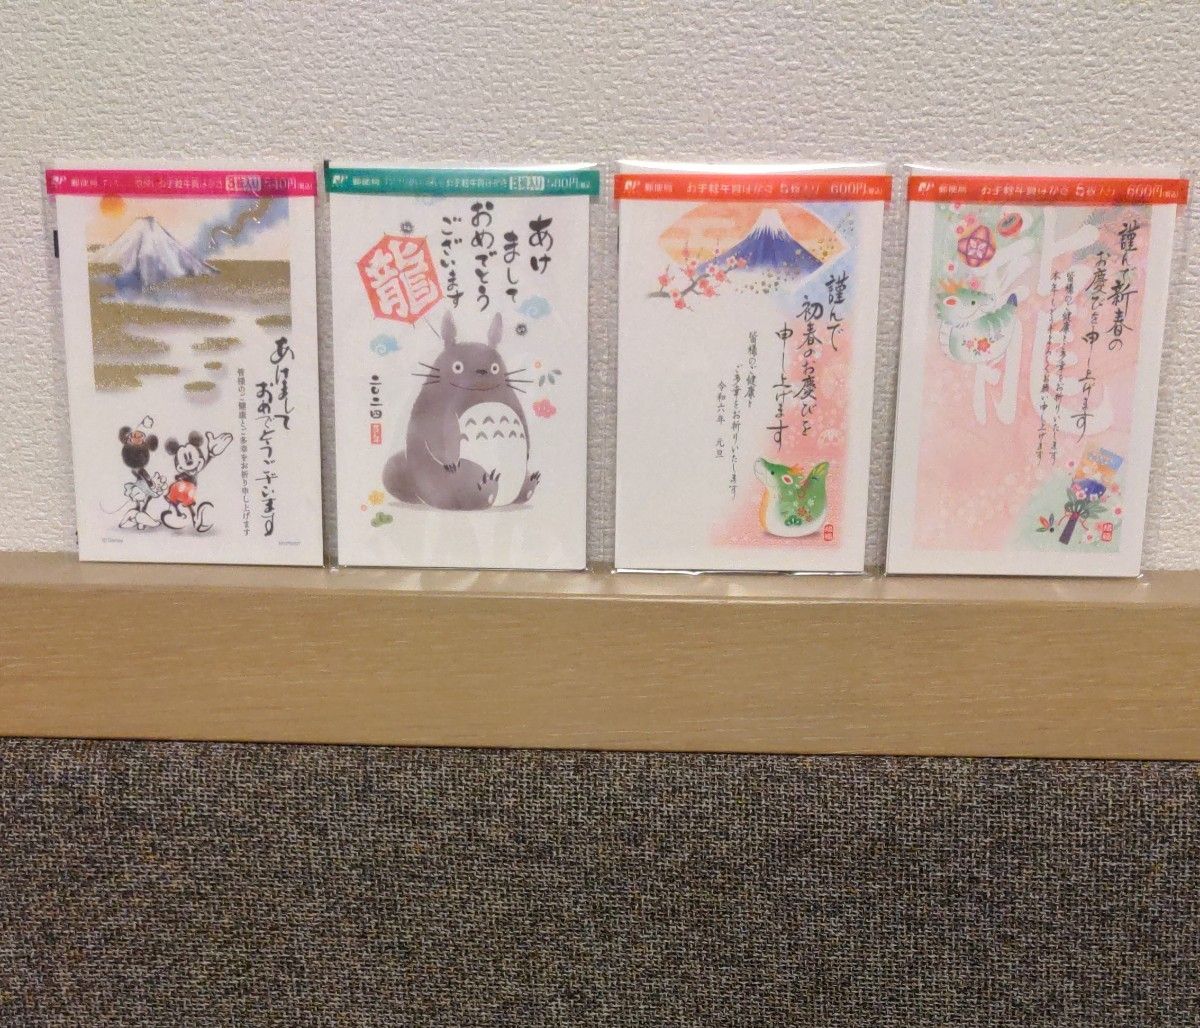 郵便局
お手軽年賀はがき 3枚入り 510円(税込)
あけまして
おめでとうございます
皆様のご健康とご多幸をお祈り申し上げます
© Disney
郵便局
お手軽年賀はがき 3枚入り 540円(税込)
あけ
まして
おめでとう
ございます
龍
二〇二四
郵便局 お手軽年賀はがき 5枚入り 600円(税込)
謹んで
初春のお慶びを
申し上げます
皆様のご健康と
ご多幸をお祈りいたします
令和六年 元旦
郵便局 お手軽年賀はがき 5枚入り 600円(税込)
龍
謹んで新春の
お慶びを申し上げます
皆様のご健康とご多幸をお祈りいたします
本年もどうぞよろしくお願い申し上げます